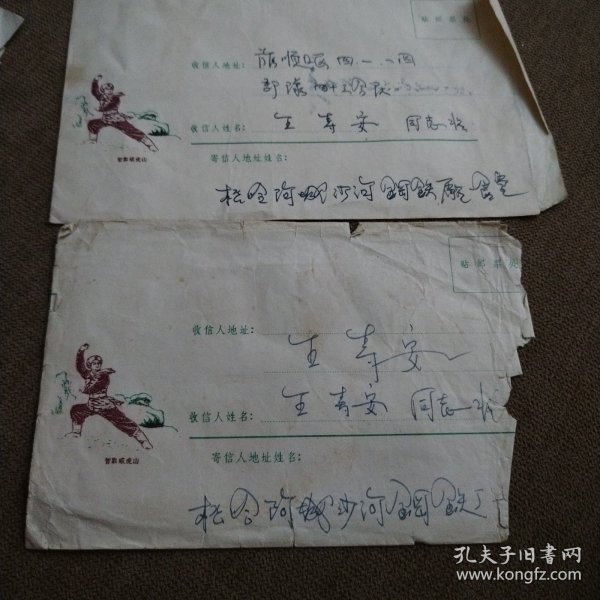 贴邮票处
收信人地址：旅顺口区四一八四
部队
收信人姓名：王寿安 同志收
智取威虎山
寄信人地址姓名：
松哈阿城沙河钢铁厂
贴邮票处
收信人地址：王寿安
收信人姓名：王寿安 同志收
智取威虎山
寄信人地址姓名：
松哈阿城沙河钢铁厂
孔夫子旧书网
www.kongfz.com